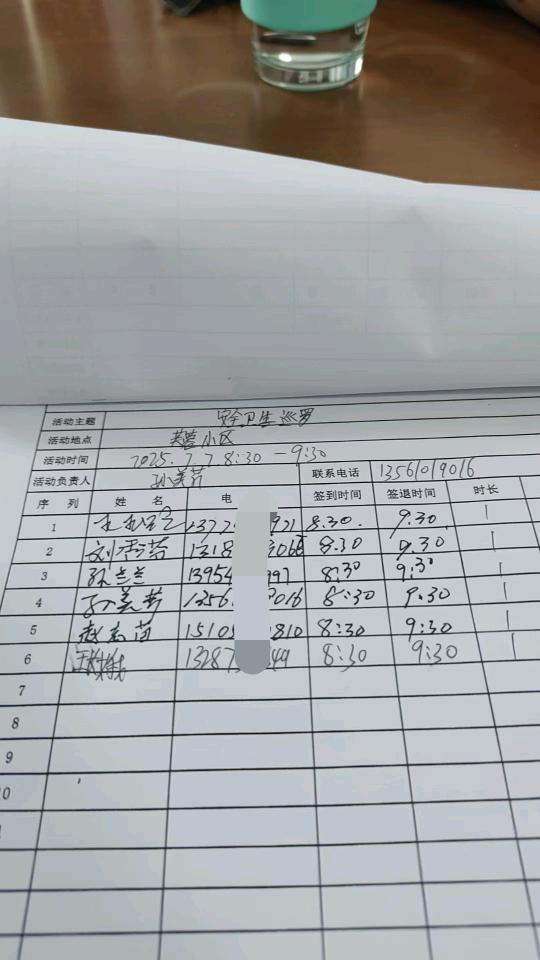 活动主题 安全卫生巡罗
活动地点 芙蓉小区
活动时间 2025.7.7.8:30-9:30
活动负责人 孙美芹 联系电话 13561019016
序列 姓名 电 签到时间 签退时间 时长
1 1372 921 8:30. 9:30. 1
2 1318 8:30 9.30 1
3 兰兰 13954 997 8:30 9:30 1
4 孙美芹 1356 9016 8:30 9:30 1
5 赵 苗 1510 810 8:30 9:30 1
6 13287 49 8:30 9:30 1
7
8
9
10